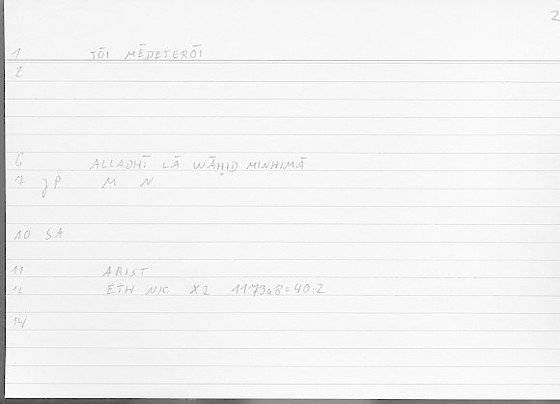 2
1 TŌI MĒDETERŌI
2
6 ALLADHĪ LĀ WĀḤID MINHIMĀ
7 JP M N
10 SA
11 ARIST
12 ETH NIC X2 1173a8=40.2
14